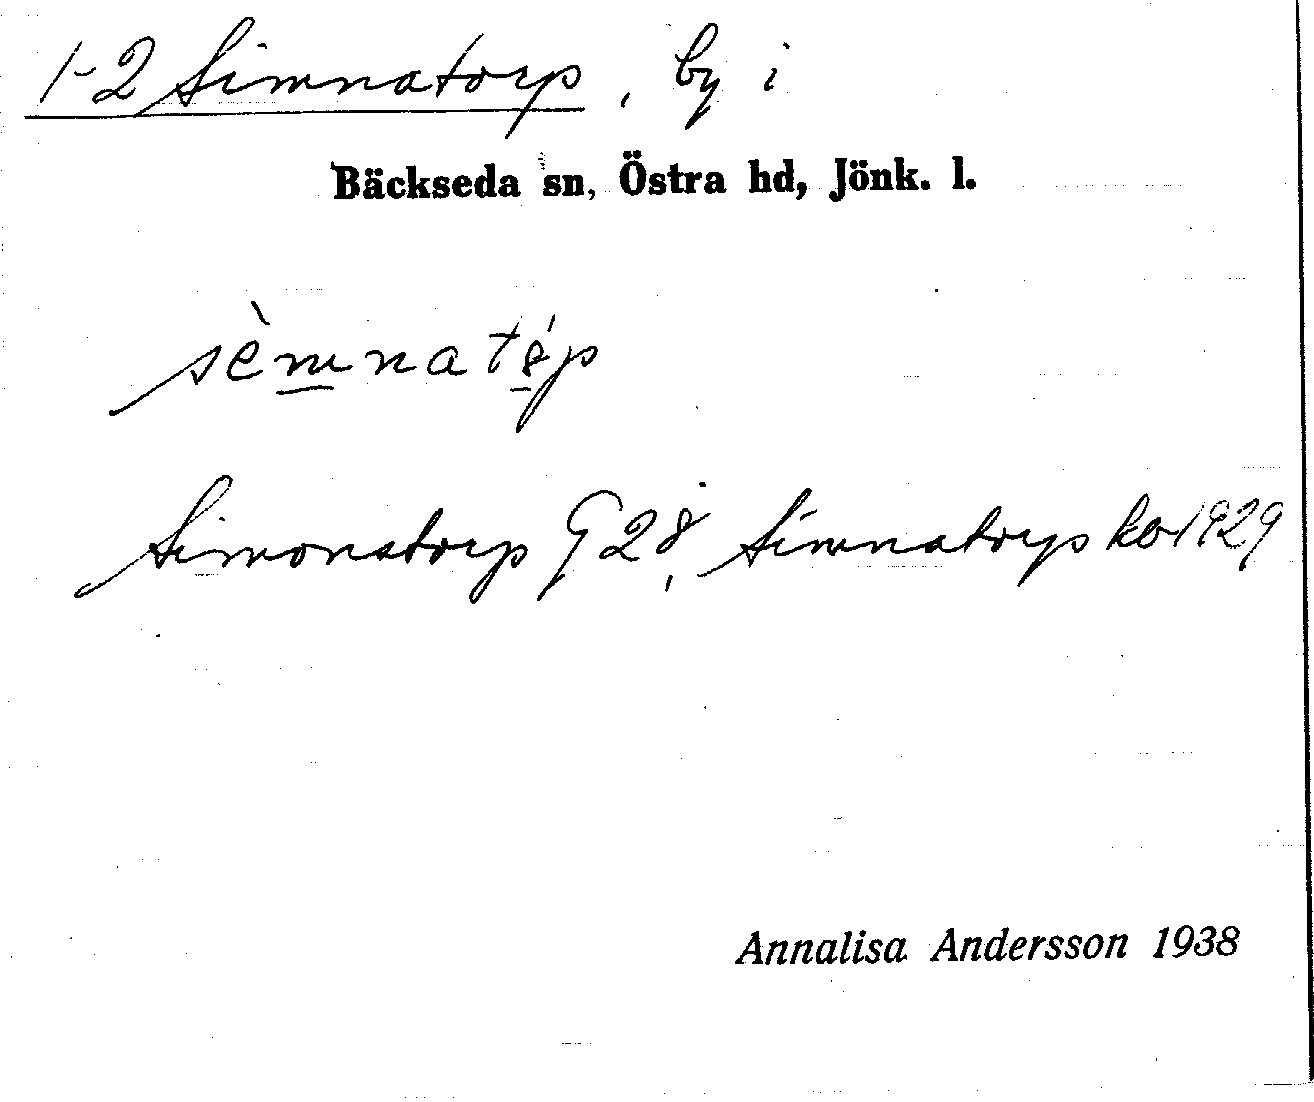 1-2 Simnatorp, by i
Bäckseda sn, Östra hd, Jönk. l.
sèmnat
Simonatorp G 28, Simnatorp kb 1929
Annalisa Andersson 1938